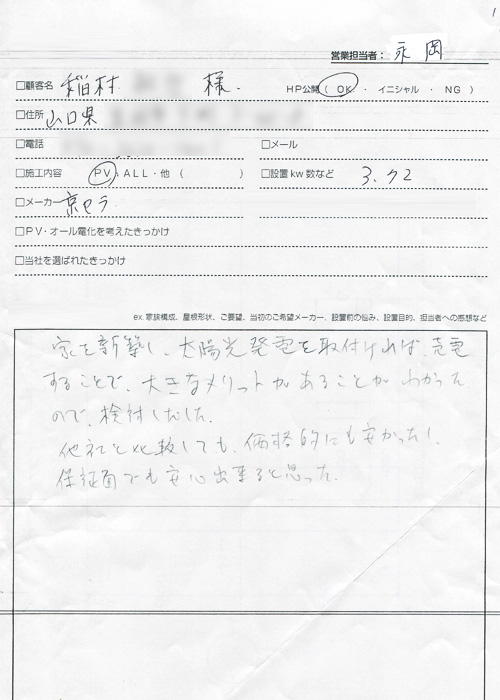 1
営業担当者: 永岡
□顧客名 稲村 様. HP公開( OK ・ イニシャル ・ NG )
□住所 山口県
□電話 □メール
□施工内容 PV・ALL・他 ( ) □設置kw数など 3.72
□メーカー 京セラ
□PV・オール電化を考えたきっかけ
□当社を選ばれたきっかけ
ex.家族構成、屋根形状、ご要望、当初のご希望メーカー、設置前の悩み、設置目的、担当者への感想など
家を新築し、太陽光発電を取付ければ、売電
することで、大きなメリットがあることがわかった
ので、検討しました.
他社と比較しても、価格的にも安かったし、
保証面でも安心出来ると思った.